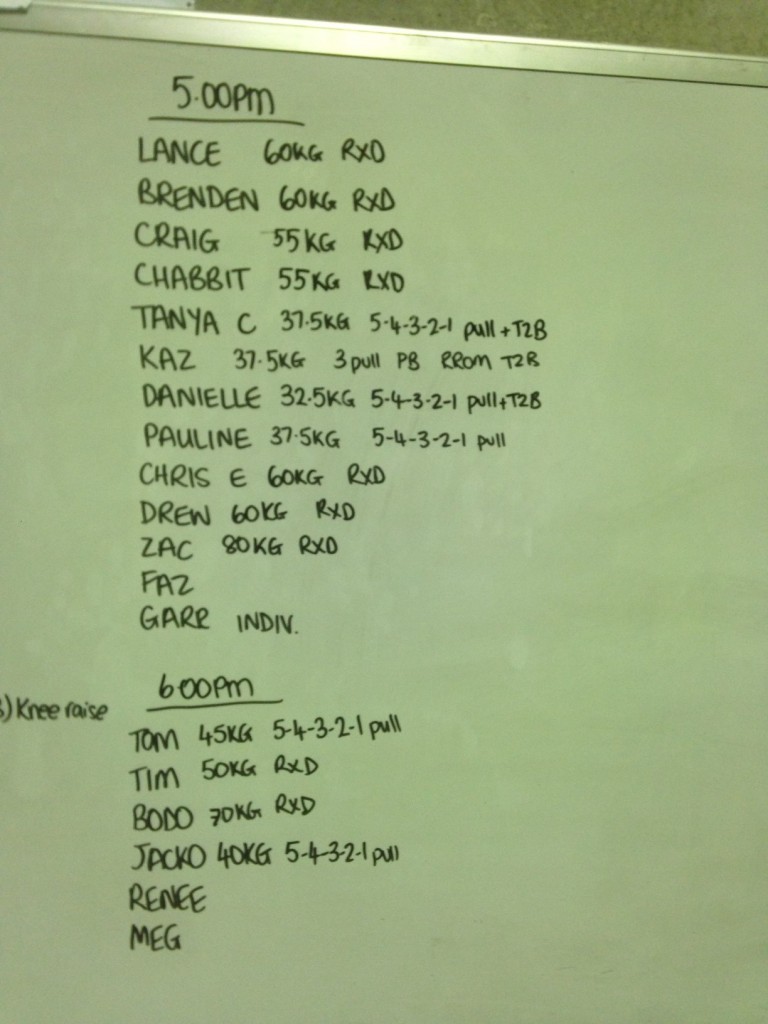 5.00pm
LANCE 60KG RXD
BRENDEN 60KG RXD
CRAIG 55KG RXD
CHABBIT 55KG RXD
TANYA C 37.5KG 5-4-3-2-1 pull+T2B
KAZ 37.5KG 3 pull PB RROM T2B
DANIELLE 32.5KG 5-4-3-2-1 pull+T2B
PAULINE 37.5KG 5-4-3-2-1 pull
CHRIS E 60KG RXD
DREW 60KG RXD
ZAC 80KG RXD
FAZ
GARR INDIV.
6.00pm
) Knee raise
TOM 45KG 5-4-3-2-1 pull
TIM 50KG RXD
BODO 70KG RXD
JACKO 40KG 5-4-3-2-1 pull
RENEE
MEG